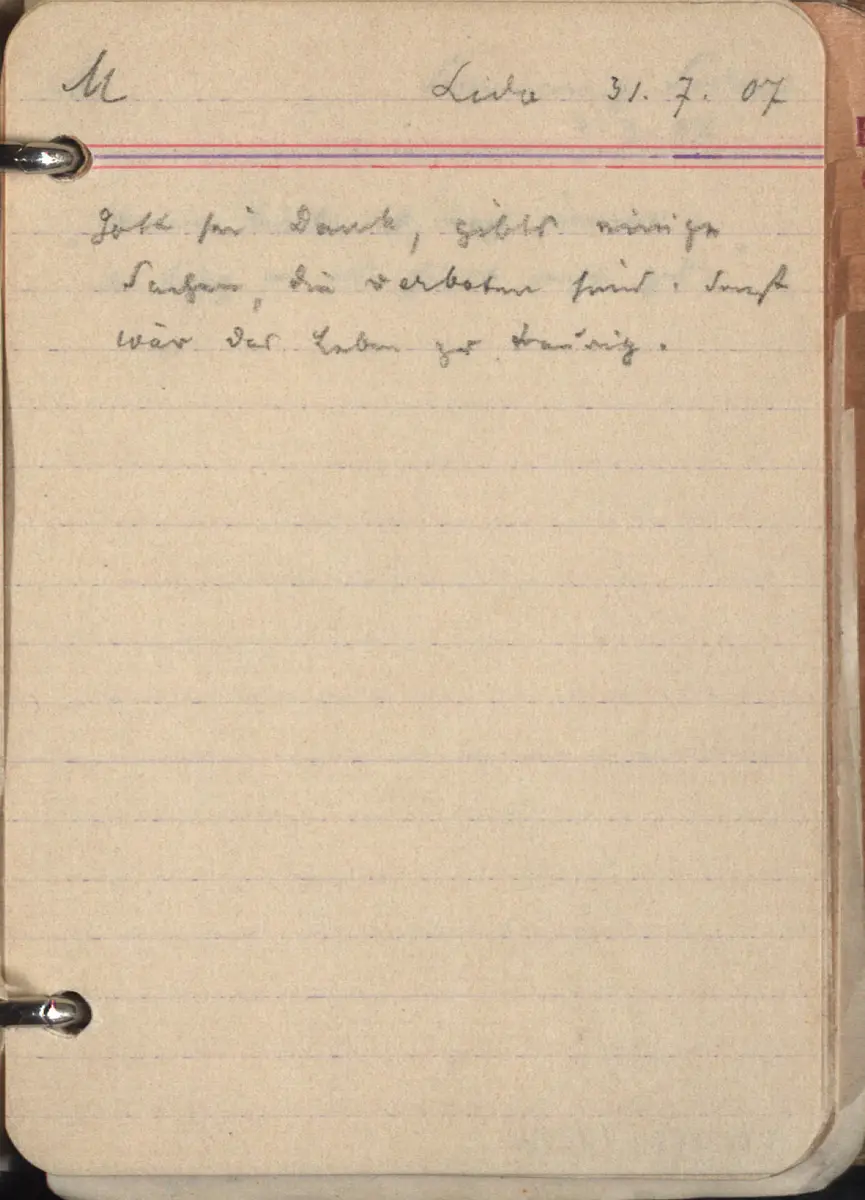 M Lido 31. 7. 07
Gott sei Dank, gibts einige
Sachen, die verboten sind. Sonst
wär das Leben zu traurig.